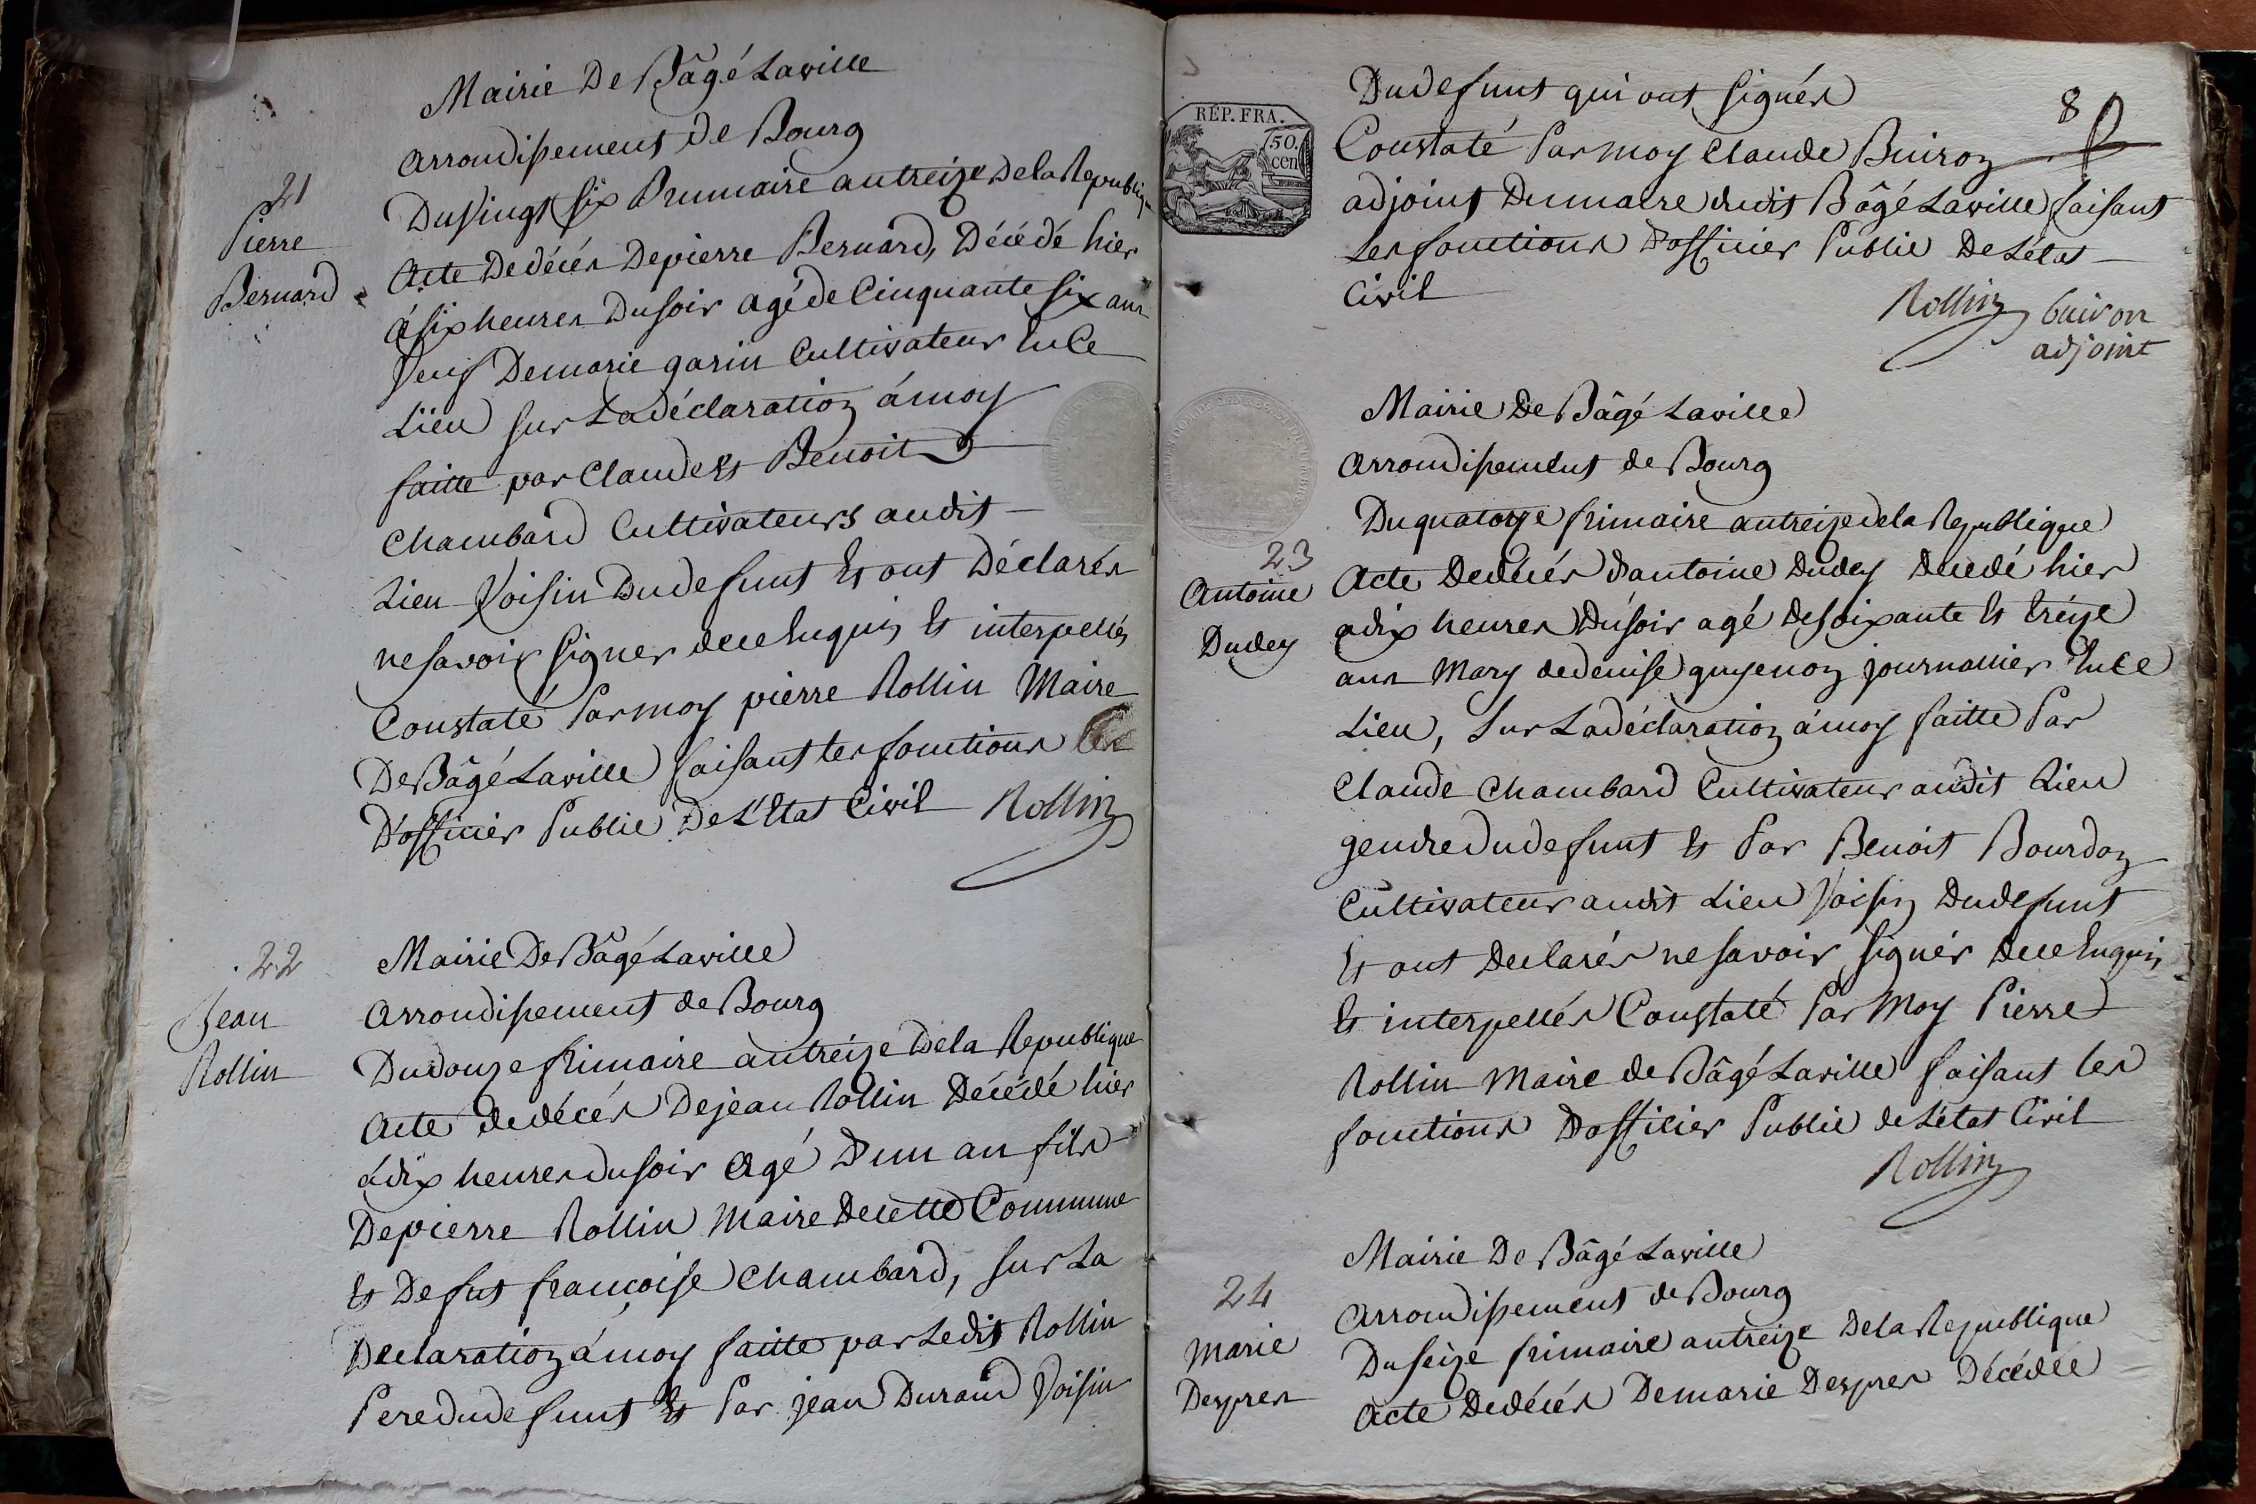 Mairie De Bâgé Laville
arrondissement de Bourg
21
Pierre
Bernard
Du Vingt Six Brumaire an treize De la Republiq
Acte De décés De pierre Bernard, Décédé hier
á six heures Du soir agé de Cinquante six ans
Veuf De marie garin Cultivateur En Ce
Lieu sur La déclaration á moy
faitte par Claude Et Benoit
Chambard Cultivateurs audit
Lieu Voisin Du defunt Et ont Déclarés
ne savoir signer de ce Enquis Et interpellés
Constaté Par moy pierre Rollin Maire
De Bâgé Laville faisant les fonctions
D'officier Public De L'Etat Civil Rollin
22
Jean
Rollin
Mairie De Bâgé Laville
arrondissement de Bourg
Du douze frimaire an treize De la Republique
Acte de décés De jean Rollin Décédé hier
á dix heures du soir Agé D'un an fils
De pierre Rollin Maire De cette Commune
Et De fut françoise Chambard, sur La
Declaration á moy faitte par Ledit Rollin
Pere du defunt Et Par jean Durand Voisin
RÉP. FRA.
50.
cen
8
Du defunt qui ont signés
Constaté Par moy Claude Buiron
adjoint Du maire dudit Bâgé Laville faisant
Les fonctions D'officier Public De L'état
Civil
Rollin buiron
adjoint
Mairie De Bâgé Laville
arrondissement de Bourg
23
Antoine
Dudey
Du quatorze frimaire an treize de la Republique
Acte De décés d'antoine Dudey Décédé hier
a dix heures Du soir agé De soixante Et treize
ans Mary de denise guyenon journallier En Ce
Lieu, Sur La déclaration á moy faitte Par
Claude Chambard Cultivateur audit Lieu
gendre du defunt Et Par Benoit Bourdon
Cultivateur audit Lieu Voisin Du defunt
Et ont Declarés ne savoir signér De ce Enquis
Et interpellés Constaté Par Moy Pierre
Rollin Maire de Bâgé Laville faisant les
fonctions D'officier Public de L'état Civil
Rollin
24
Marie
Despres
Mairie De Bâgé Laville
arrondissement de Bourg
Du seize frimaire an treize De la Republique
Acte De décés De marie Despres Décédée